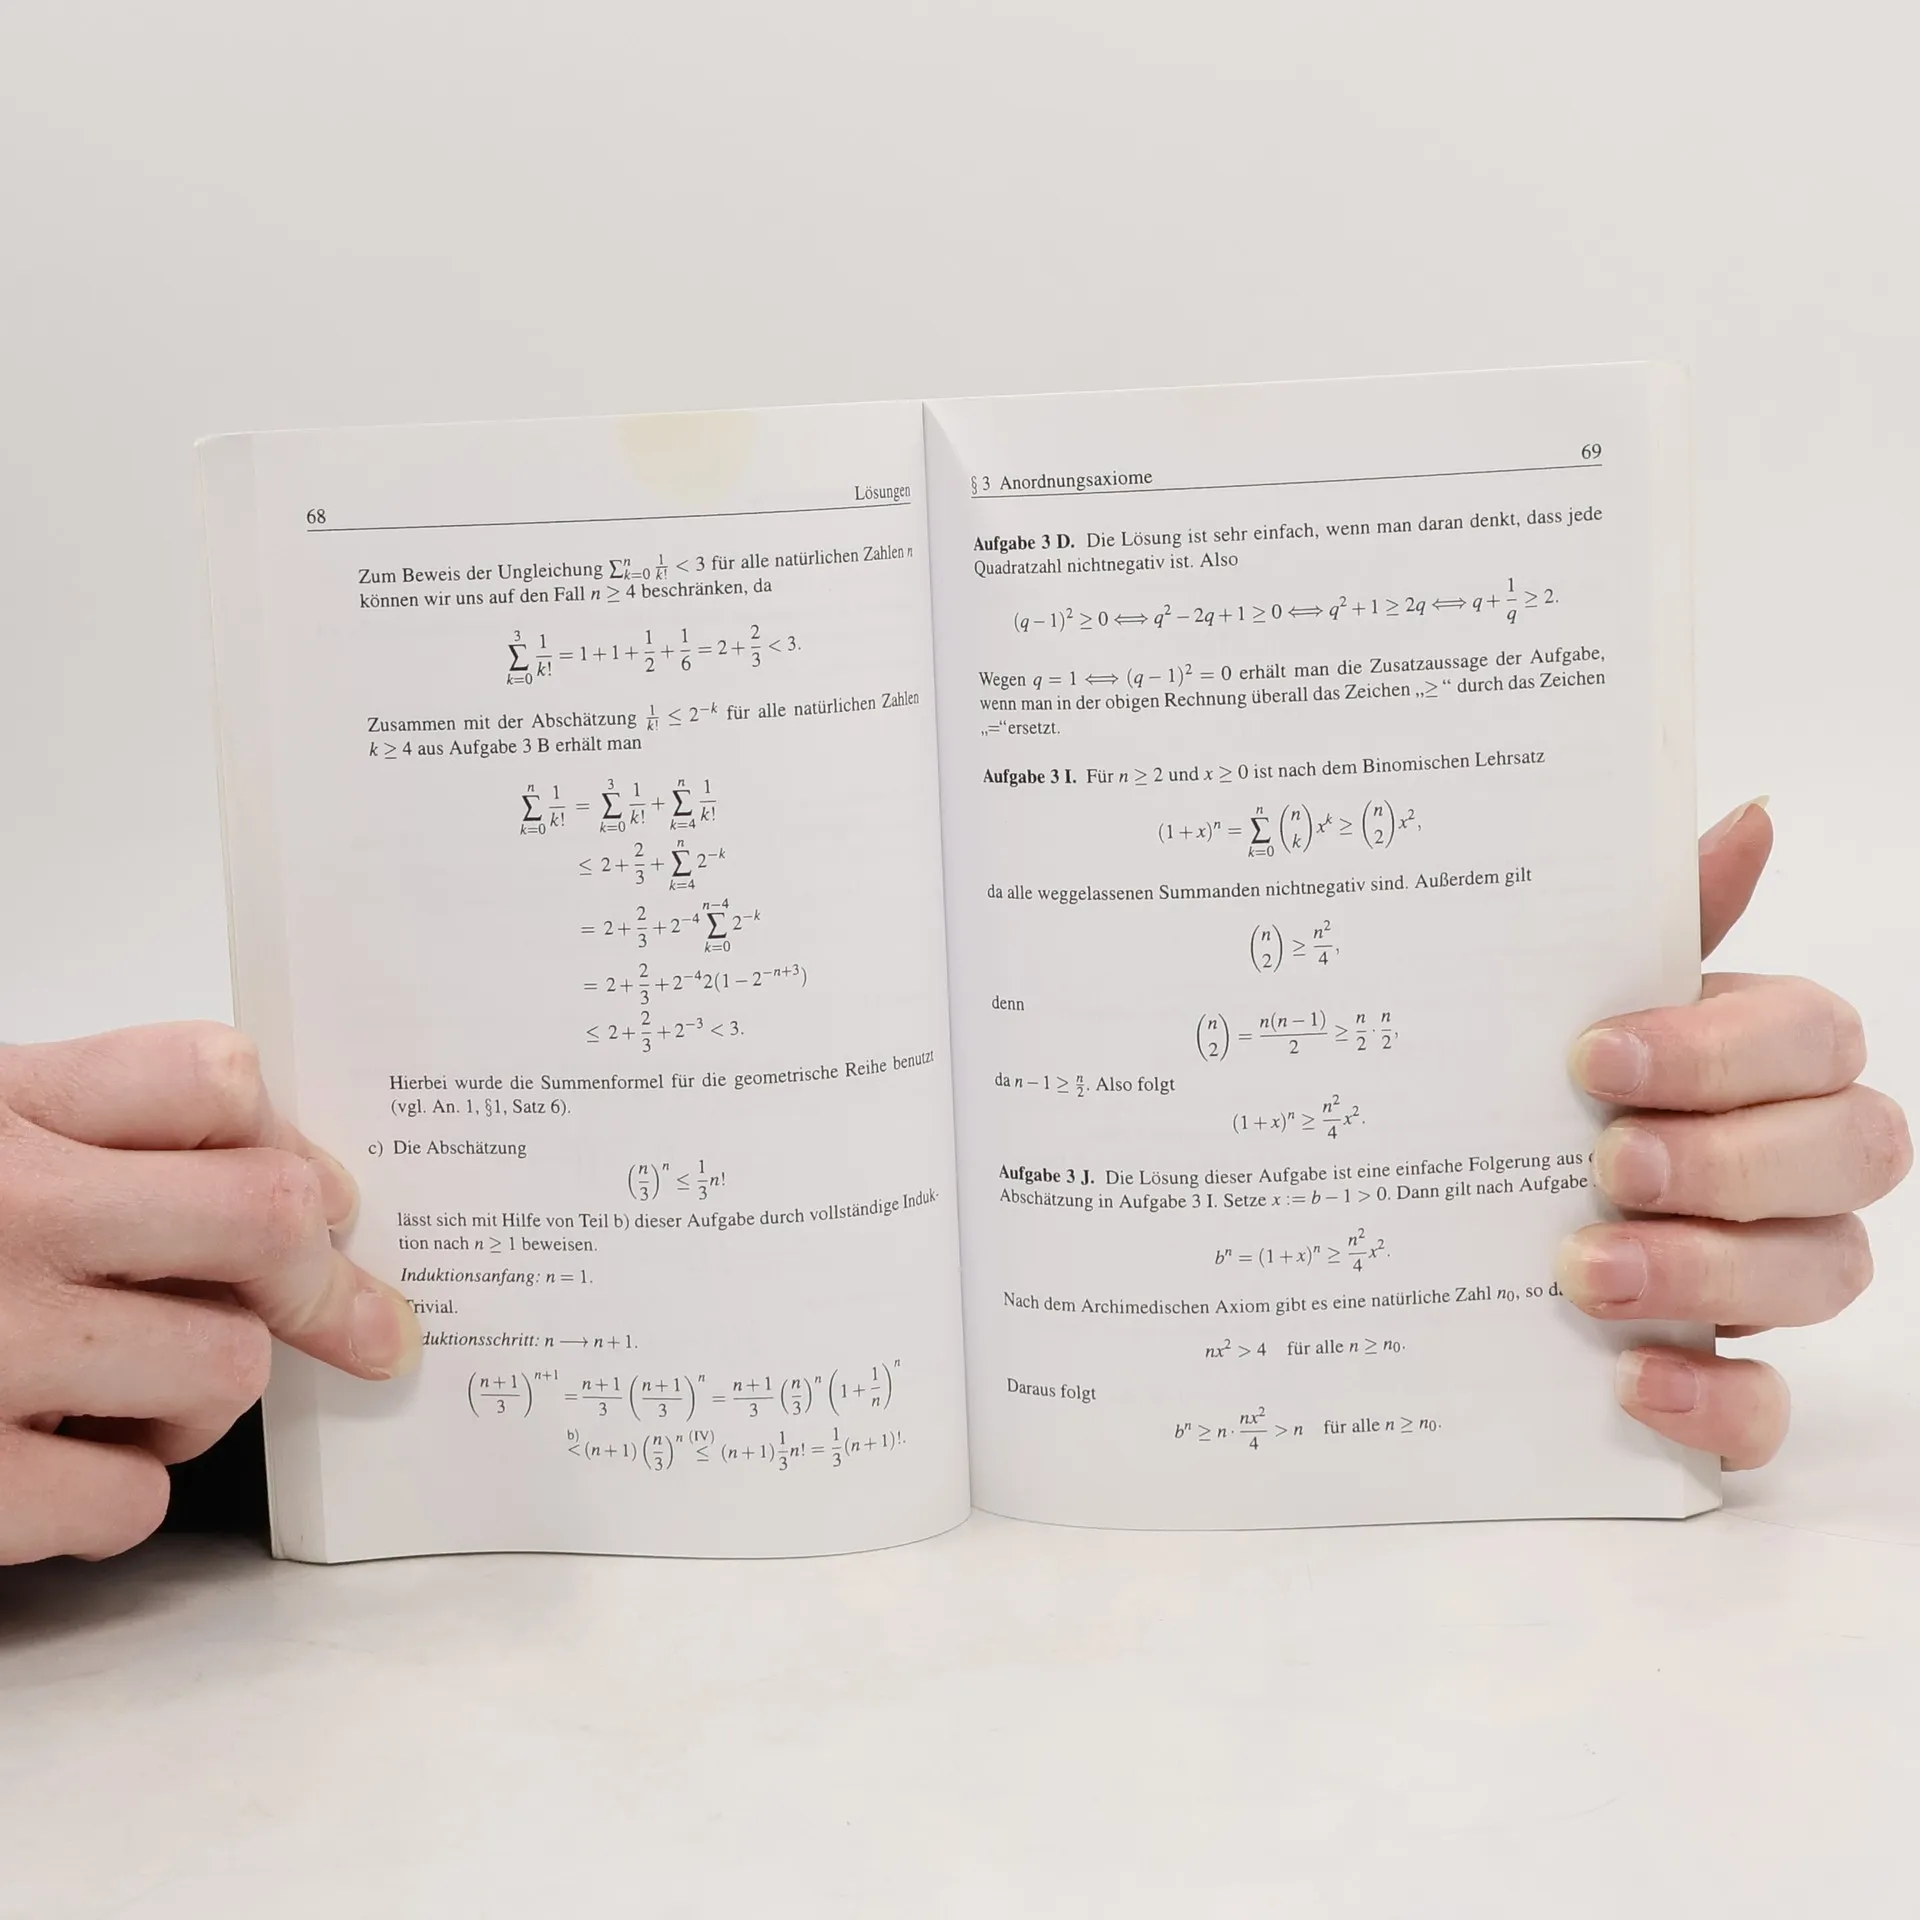 68
Lösungen
Zum Beweis der Ungleichung ∑_{k=0}^{n} 1/k! < 3 für alle natürlichen Zahlen n
können wir uns auf den Fall n ≥ 4 beschränken, da
∑_{k=0}^{3} 1/k! = 1+1+1/2+1/6 = 2+2/3 < 3.
Zusammen mit der Abschätzung 1/k! ≤ 2^{−k} für alle natürlichen Zahlen
k ≥ 4 aus Aufgabe 3 B erhält man
∑_{k=0}^{n} 1/k! = ∑_{k=0}^{3} 1/k! + ∑_{k=4}^{n} 1/k!
≤ 2+2/3+∑_{k=4}^{n} 2^{−k}
= 2+2/3+2^{−4} ∑_{k=0}^{n−4} 2^{−k}
= 2+2/3+2^{−4}2(1−2^{−n+3})
≤ 2+2/3+2^{−3} < 3.
Hierbei wurde die Summenformel für die geometrische Reihe benutzt
(vgl. An. 1, §1, Satz 6).
c) Die Abschätzung
(n/3)^n ≤ 1/3 n!
lässt sich mit Hilfe von Teil b) dieser Aufgabe durch vollständige Induk-
tion nach n ≥ 1 beweisen.
Induktionsanfang: n = 1.
Trivial.
duktionsschritt: n ⟶ n+1.
((n+1)/3)^{n+1} = (n+1)/3 ((n+1)/3)^n = (n+1)/3 (n/3)^n (1+1/n)^n
b) < (n+1) (n/3)^n (IV) ≤ (n+1) 1/3 n! = 1/3 (n+1)!.
§ 3 Anordnungsaxiome
69
Aufgabe 3 D. Die Lösung ist sehr einfach, wenn man daran denkt, dass jede
Quadratzahl nichtnegativ ist. Also
(q−1)² ≥ 0 ⟺ q²−2q+1 ≥ 0 ⟺ q²+1 ≥ 2q ⟺ q+1/q ≥ 2.
Wegen q = 1 ⟺ (q−1)² = 0 erhält man die Zusatzaussage der Aufgabe,
wenn man in der obigen Rechnung überall das Zeichen „≥“ durch das Zeichen
„=“ersetzt.
Aufgabe 3 I. Für n ≥ 2 und x ≥ 0 ist nach dem Binomischen Lehrsatz
(1+x)^n = ∑_{k=0}^{n} (n k) x^k ≥ (n 2) x²,
da alle weggelassenen Summanden nichtnegativ sind. Außerdem gilt
(n 2) ≥ n²/4,
denn
(n 2) = n(n−1)/2 ≥ n/2 · n/2,
da n−1 ≥ n/2. Also folgt
(1+x)^n ≥ n²/4 x².
Aufgabe 3 J. Die Lösung dieser Aufgabe ist eine einfache Folgerung aus
Abschätzung in Aufgabe 3 I. Setze x := b−1 > 0. Dann gilt nach Aufgabe
b^n = (1+x)^n ≥ n²/4 x².
Nach dem Archimedischen Axiom gibt es eine natürliche Zahl n₀, so
nx² > 4 für alle n ≥ n₀.
Daraus folgt
b^n ≥ n · nx²/4 > n für alle n ≥ n₀.